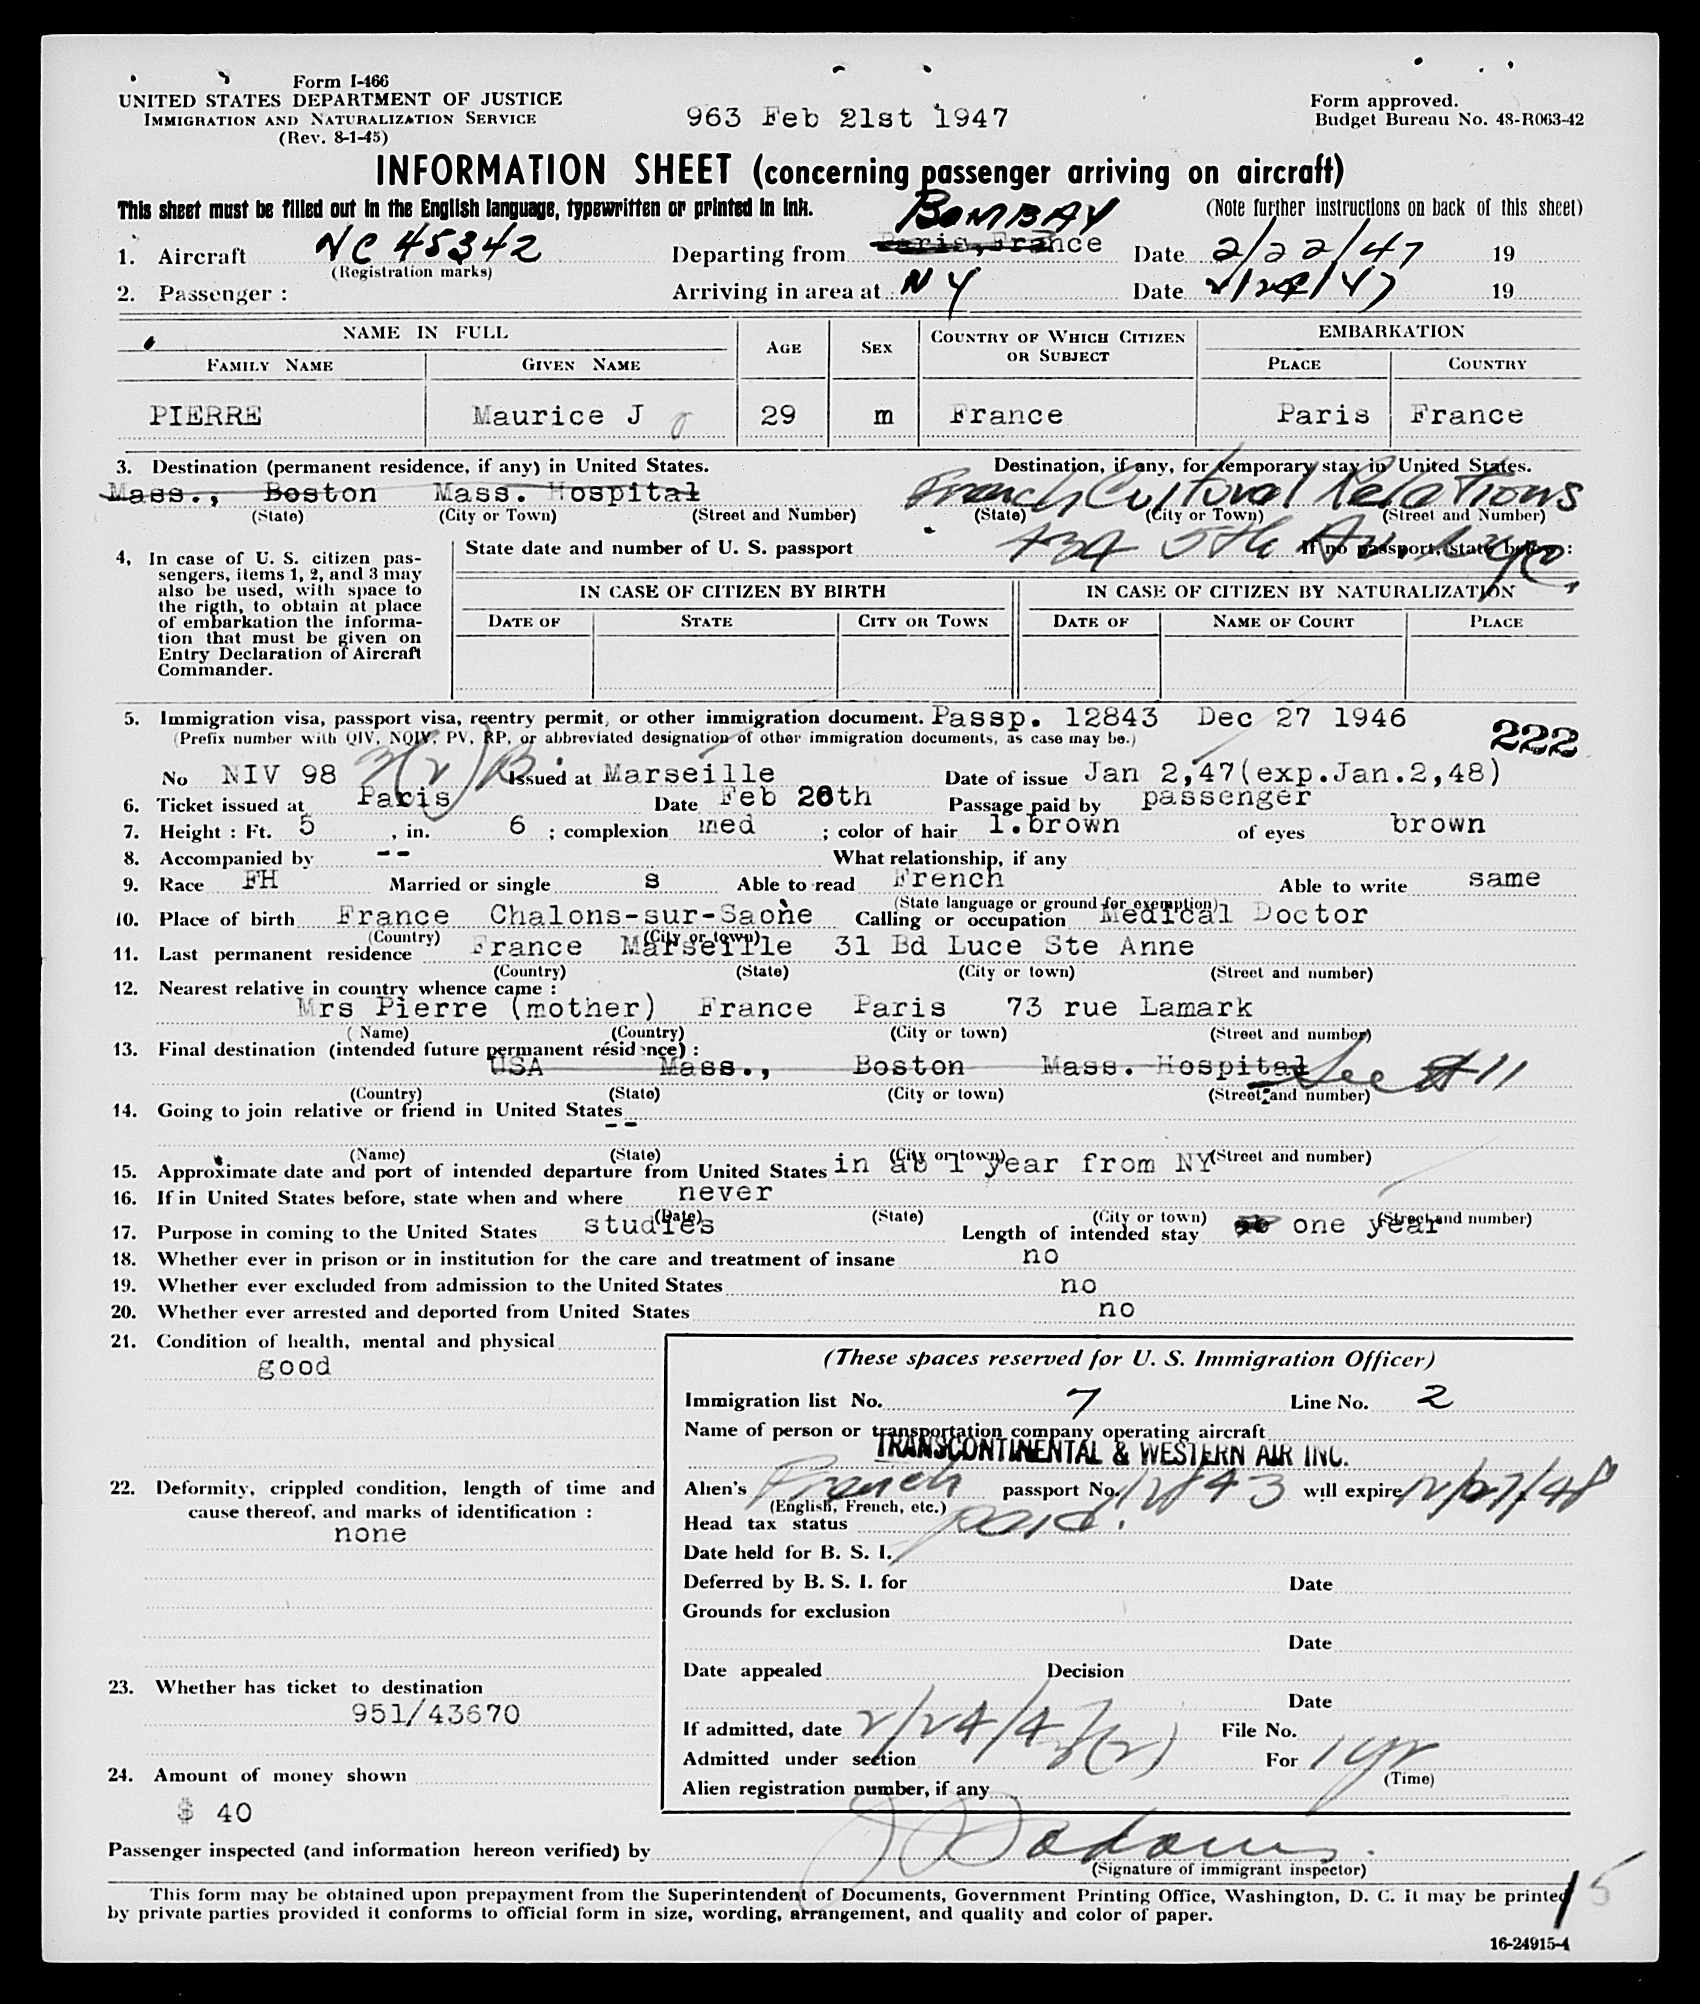 Form I-466
UNITED STATES DEPARTMENT OF JUSTICE
IMMIGRATION AND NATURALIZATION SERVICE
(Rev. 8-1-45)
963 Feb 21st 1947
Form approved.
Budget Bureau No. 48-R063-42
INFORMATION SHEET (concerning passenger arriving on aircraft)
This sheet must be filled out in the English language, typewritten or printed in ink.
(Note further instructions on back of this sheet)
BOMBAY
1. Aircraft NC 45342 Departing from Paris, France Date 2/22/47 19
(Registration marks)
2. Passenger : Arriving in area at NY Date 2/24/47 19
NAME IN FULL AGE SEX COUNTRY OF WHICH CITIZEN OR SUBJECT EMBARKATION
FAMILY NAME GIVEN NAME PLACE COUNTRY
PIERRE Maurice J 29 m France Paris France
3. Destination (permanent residence, if any) in United States. Destination, if any, for temporary stay in United States.
Mass., Boston Mass. Hospital French Cultural Relations
(State) (City or Town) (Street and Number) (State) (City or Town) (Street and Number)
934 5th Av. NYC.
4, In case of U. S. citizen pas-
sengers, items 1, 2, and 3 may
also be used, with space to
the rigth, to obtain at place
of embarkation the informa-
tion that must be given on
Entry Declaration of Aircraft
Commander.
State date and number of U. S. passport If no passport, state below :
IN CASE OF CITIZEN BY BIRTH IN CASE OF CITIZEN BY NATURALIZATION
DATE OF STATE CITY OR TOWN DATE OF NAME OF COURT PLACE
5. Immigration visa, passport visa, reentry permit, or other immigration document. Passp. 12843 Dec 27 1946
(Prefix number with QIV, NQIV, PV, RP, or abbreviated designation of other immigration documents, as case may be.)
222
No NIV 98 3(2) Issued at Marseille Date of issue Jan 2,47(exp.Jan.2,48)
6. Ticket issued at Paris Date Feb 20th Passage paid by passenger
7. Height : Ft. 5 , in. 6 ; complexion med ; color of hair l.brown of eyes brown
8. Accompanied by -- What relationship, if any
9. Race FH Married or single s Able to read French Able to write same
(State language or ground for exemption)
10. Place of birth France Chalons-sur-Saone Calling or occupation Medical Doctor
(Country) (City or town)
11. Last permanent residence France Marseille 31 Bd Luce Ste Anne
(Country) (State) (City or town) (Street and number)
12. Nearest relative in country whence came :
Mrs Pierre (mother) France Paris 73 rue Lamark
( Name) (Country) (City or town) (Street and number)
13. Final destination (intended future permanent résidence) :
USA Mass., Boston Mass. Hospital See #11
(Country) (State) (City or town) (Street and number)
14. Going to join relative or friend in United States
--
(Name) (State) (City or town) (Street and number)
15. Approximate date and port of intended departure from United States in ab 1 year from NY
16. If in United States before, state when and where never
(Date) (State) (City or town) (Street and number)
17. Purpose in coming to the United States studies Length of intended stay ab one year
18. Whether ever in prison or in institution for the care and treatment of insane no
19. Whether ever excluded from admission to the United States no
20. Whether ever arrested and deported from United States no
21. Condition of health, mental and physical
good
22. Deformity, crippled condition, length of time and
cause thereof, and marks of identification :
none
23. Whether has ticket to destination
951/43670
24. Amount of money shown
$ 40
(These spaces reserved for U. S. Immigration Officer)
Immigration list No. 7 Line No. 2
Name of person or transportation company operating aircraft
TRANSCONTINENTAL & WESTERN AIR INC.
Alien's French passport No. 12843 will expire 12/27/48
(English, French, etc.)
Head tax status paid.
Date held for B. S. I.
Deferred by B. S. I. for Date
Grounds for exclusion
Date
Date appealed Decision
Date
If admitted, date 2/24/47 File No.
Admitted under section 3(2) For 1 yr
(Time)
Alien registration number, if any
Passenger inspected (and information hereon verified) by Adams.
(Signature of immigrant inspector)
This form may be obtained upon prepayment from the Superintendent of Documents, Government Printing Office, Washington, D. C. It may be printed
by private parties provided it conforms to official form in size, wording, arrangement, and quality and color of paper.
15
16-24915-4